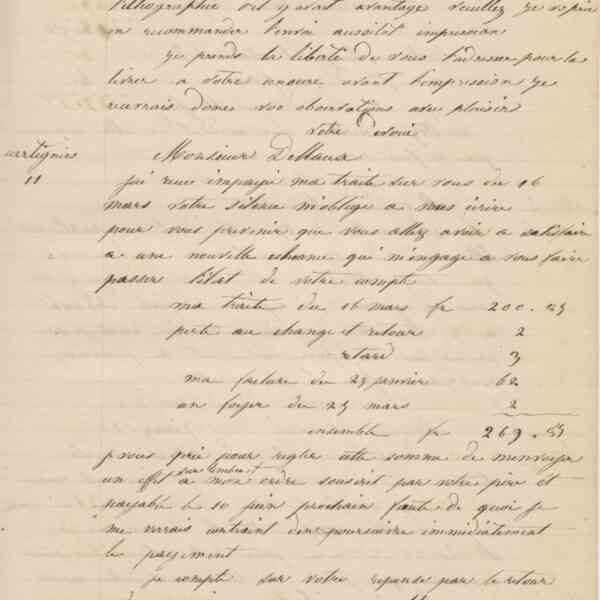 lithographie s'il y avait avantage veuillez je
en recommander l'envoi aussitôt impression
je prends la liberté de vous l'adresser pour le
livrer a votre censure avant l'impression je
recevrais donc vos observations avec plaisir
votre dévoué
11
Monsieur
j'ai reçu impayé ma traite sur vous du 16
mars votre silence m'oblige a vous écrire
pour vous prévenir que vous allez avoir a satisfaire
a une nouvelle échéance qui m'engage a vous faire
passer l'état de votre compte
ma traite du 16 mars fr 200.85
perte au change et retour 2
retard 3
ma facture du 23 janvier 62
un foyer du 25 mars 2
ensemble fr 269.85
je vous prie pour régler cette somme de m'envoyer
un effet sur timbre a mon ordre souscrit par votre père et
payable le 10 juin prochain faute de quoi je
me verrais contraint d'en poursuivre immédiatement
le payement
je compte sur votre réponse par le retour